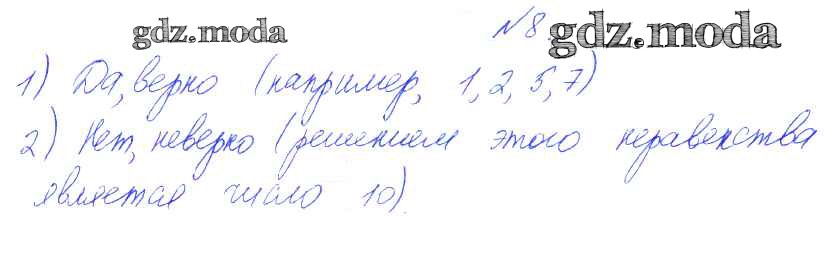 gdz.moda №8. gdz.moda
1) Да, верно (например, 1, 2, 5, 7)
2) Нет, неверно (решением этого неравенства
является число 10).